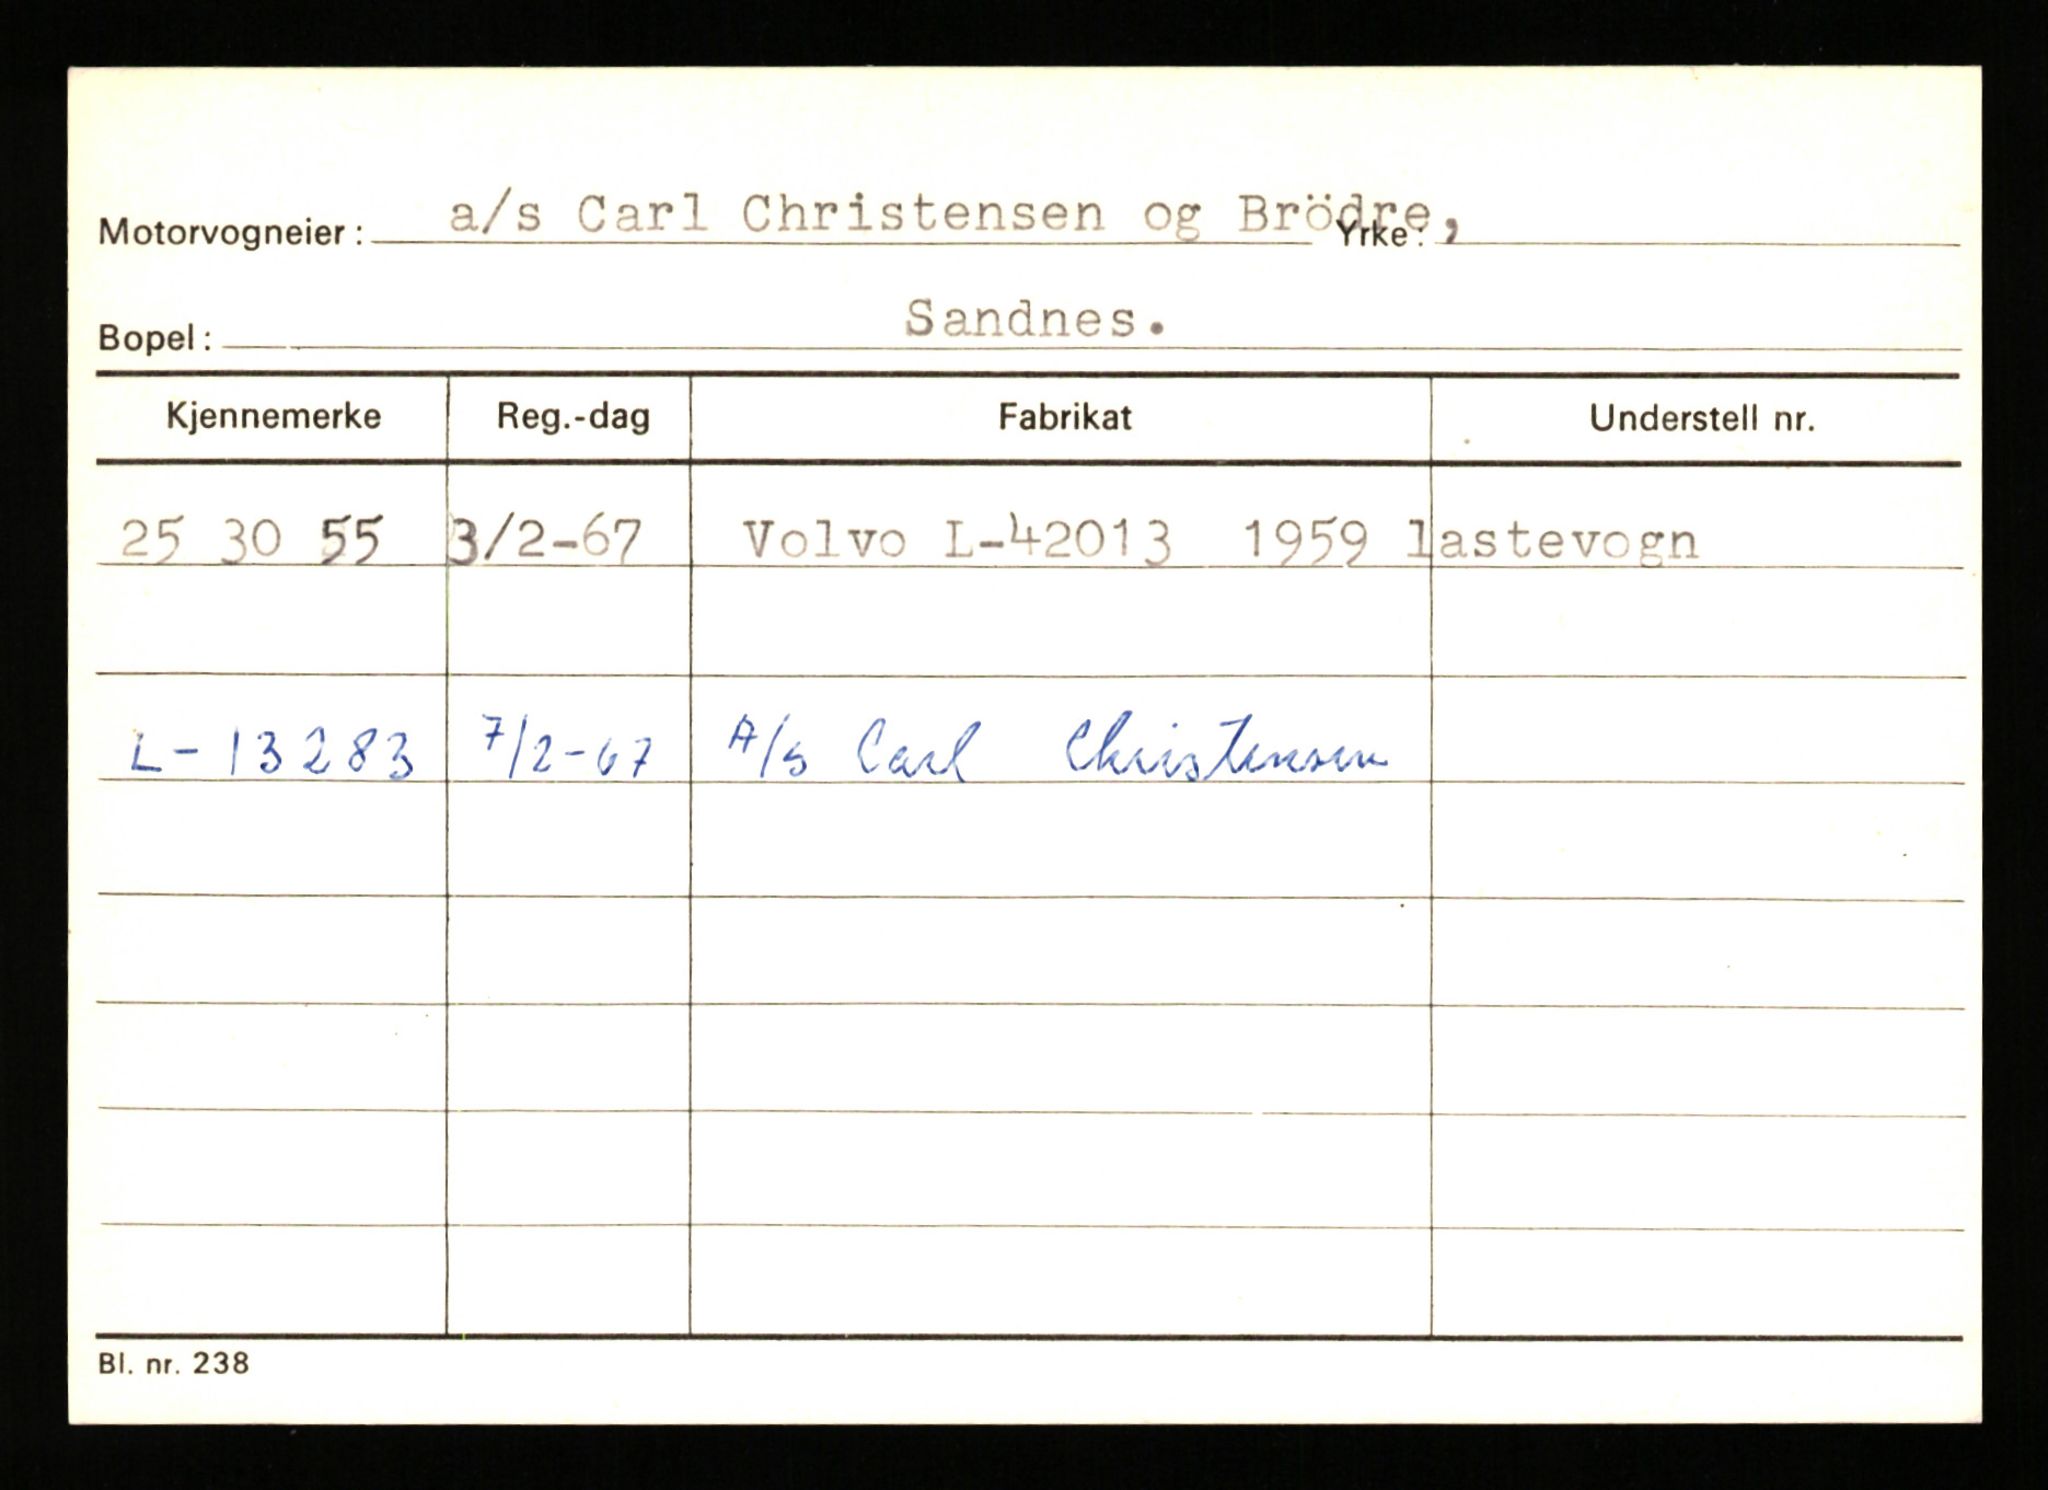 Motorvogneier: a/s Carl Christensen og Brödre, Yrke:
Bopel: Sandnes.
Kjennemerke Reg.-dag Fabrikat Understell nr.
25 30 55 3/2-67 Volvo L-42013 1959 lastevogn
L-13283 7/2-67 A/s Carl Christensen
Bl. nr. 238